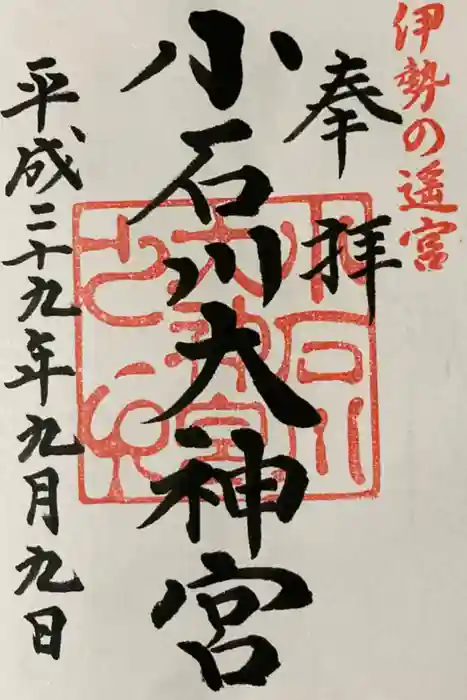 伊勢の遥宮
奉拝
小石川大神宮
平成二十九年九月九日
小石川
大神宮
之印